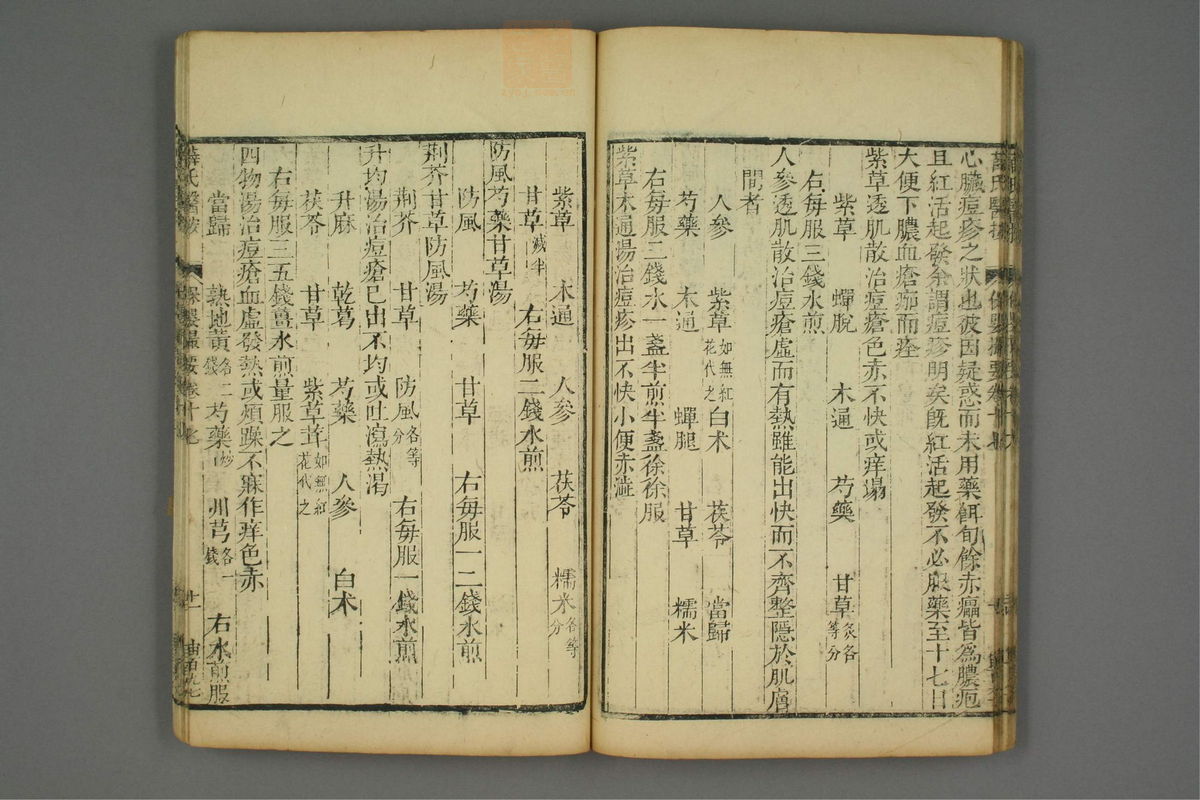 心臟痘疹之狀也彼因疑惑而未用藥餌旬餘赤瘟皆為膿疱
且紅活起發余謂痘疹明矣旣紅活起發不必服藥至十七日
大便下膿血瘡痂而痊
紫草透肌散治痘瘡色赤不快或痒塌
紫草 蟬脫 木通 芍藥 甘草炙各等分
右每服三錢水煎
人參透肌散治痘瘡虛而有熱雖能出快而不齊整隱於肌膚
間者
人參 紫草如無紅花代之 白术 茯苓 當歸
芍藥 木通 蟬腿 甘草 糯米
右每服二錢水一盞半煎半盞徐徐服
紫草木通湯治痘疹出不快小便赤澁
紫草 木通 人參 茯苓 糯米各等分
甘草減半 右每服二錢水煎
防風芍藥甘草湯
防風 芍藥 甘草 右每服一二錢水煎
荆芥甘草防風湯
荆芥 甘草 防風各等分 右每服一錢水煎
升均湯治痘瘡已出不均或吐瀉熱渴
升麻 乾葛 芍藥 人參 白术
茯苓 甘草 紫草茸如無紅花代之
右每服三五錢薑水煎量服之
四物湯治痘瘡血虛發熱或煩躁不寐作痒色赤
當歸 熟地黃各二錢 芍藥炒 川芎各一錢 右水煎服
薛氏醫按 保嬰撮要卷十七 廿一